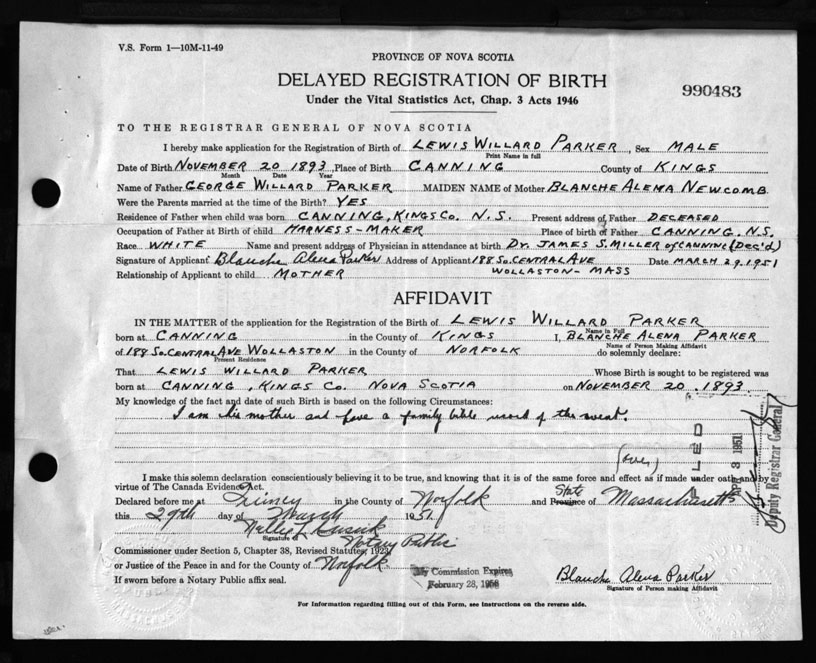 V.S. Form 1—10M-11-49
PROVINCE OF NOVA SCOTIA
DELAYED REGISTRATION OF BIRTH
990483
Under the Vital Statistics Act, Chap. 3 Acts 1946
TO THE REGISTRAR GENERAL OF NOVA SCOTIA
I hereby make application for the Registration of Birth of LEWIS WILLARD PARKER, Sex MALE
Print Name in full
Date of Birth NOVEMBER 20 1893 Place of Birth CANNING County of KINGS
Month Date Year
Name of Father GEORGE WILLARD PARKER MAIDEN NAME of Mother BLANCHE ALENA NEWCOMB
Were the Parents married at the time of the Birth? YES
Residence of Father when child was born CANNING, KINGS CO. N.S. Present address of Father DECEASED
Occupation of Father at Birth of child HARNESS-MAKER Place of birth of Father CANNING, N.S.
Race WHITE Name and present address of Physician in attendance at birth DR. JAMES S. MILLER OF CANNING (DEC'D)
Signature of Applicant Blanche Alena Parker Address of Applicant 188 SO. CENTRAL AVE Date MARCH 29, 1951
Relationship of Applicant to child MOTHER WOLLASTON - MASS
AFFIDAVIT
IN THE MATTER of the application for the Registration of Birth of LEWIS WILLARD PARKER
Name in Full
born at CANNING in the County of KINGS I, BLANCHE ALENA PARKER
Name of Person Making Affidavit
of 188 SO. CENTRAL AVE WOLLASTON in the County of NORFOLK do solemnly declare:
Present Residence
That LEWIS WILLARD PARKER Whose Birth is sought to be registered was
born at CANNING, KINGS CO. NOVA SCOTIA on NOVEMBER 20, 1893
My knowledge of the fact and date of such Birth is based on the following Circumstances:
I am his mother and have a family bible record of this event.
(over)
FILED
APR 3 1951
Deputy Registrar General
I make this solemn declaration conscientiously believing it to be true, and knowing that it is of the same force and effect as if made under oath and by
virtue of The Canada Evidence Act.
Declared before me at Quincy in the County of Norfolk and Province of State Massachusetts
this 29th day of March 1951
Signature of
Notary Public
Commissioner under Section 5, Chapter 38, Revised Statutes, 1923
or Justice of the Peace in and for the County of Norfolk
My Commission Expires
February 28, 1958
If sworn before a Notary Public affix seal.
Blanche Alena Parker
Signature of Person making Affidavit
For Information regarding filling out of this Form, see Instructions on the reverse side.